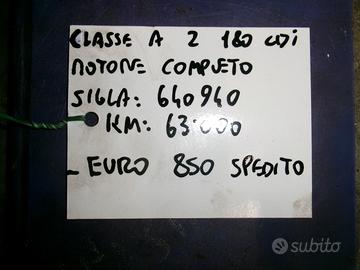 CLASSE A 2 180 CDi
MOTORE COMPLETO
SIGLA: 640940
KM: 63.000
- EURO 850 SPEDITO
subito